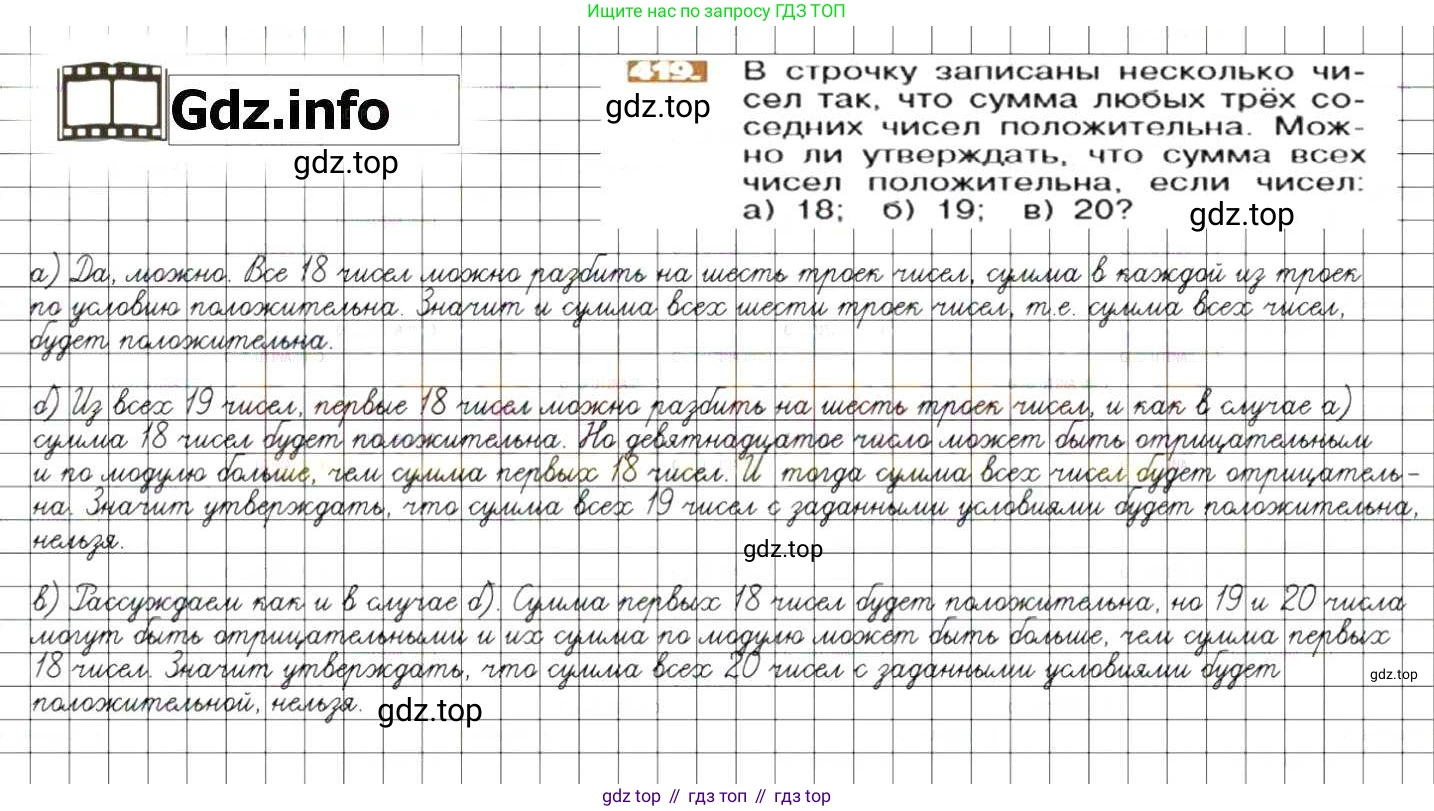 Ищите нас по запросу ГДЗ ТОП
Gdz.info
gdz.top
419.
gdz.top
В строчку записаны несколько чи-
сел так, что сумма любых трёх со-
седних чисел положительна. Мож-
но ли утверждать, что сумма всех
чисел положительна, если чисел:
а) 18; б) 19; в) 20?
gdz.top
а) Да, можно. Все 18 чисел можно разбить на шесть троек чисел, сумма в каждой из троек
по условию положительна. Значит и сумма всех шести троек чисел, т.е. сумма всех чисел,
будет положительна.
б) Из всех 19 чисел, первые 18 чисел можно разбить на шесть троек чисел, и как в случае а)
сумма 18 чисел будет положительна. Но девятнадцатое число может быть отрицательным
и по модулю больше, чем сумма первых 18 чисел. И тогда сумма всех чисел будет отрицатель-
на. Значит утверждать, что сумма всех 19 чисел с заданными условиями будет положительна,
нельзя.
gdz.top
в) Рассуждаем как и в случае б). Сумма первых 18 чисел будет положительна, но 19 и 20 числа
могут быть отрицательными и их сумма по модулю может быть больше, чем сумма первых
18 чисел. Значит утверждать, что сумма всех 20 чисел с заданными условиями будет
gdz.top
положительной, нельзя.
gdz.top
gdz top // гдз топ // гдз top